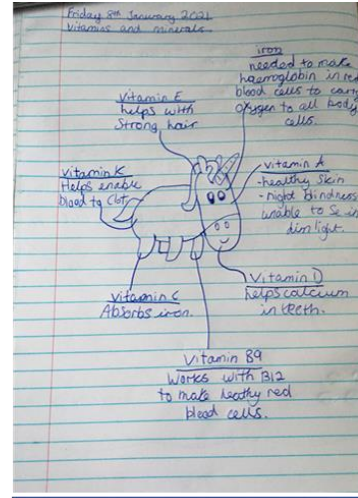 Friday 8th January 2021
Vitamins and minerals.
iron
needed to make
haemoglobin in red
blood cells to carry
oxygen to all body
cells.
Vitamin E
helps with
Strong hair
Vitamin K
Helps enable
blood to Clot
Vitamin A
-healthy skin
-night blindness
unable to Se in
dim light.
Vitamin D
helps calcium
in teeth.
Vitamin C
Absorbs iron.
Vitamin B9
Works with B12
to make heathy red
blood cells.